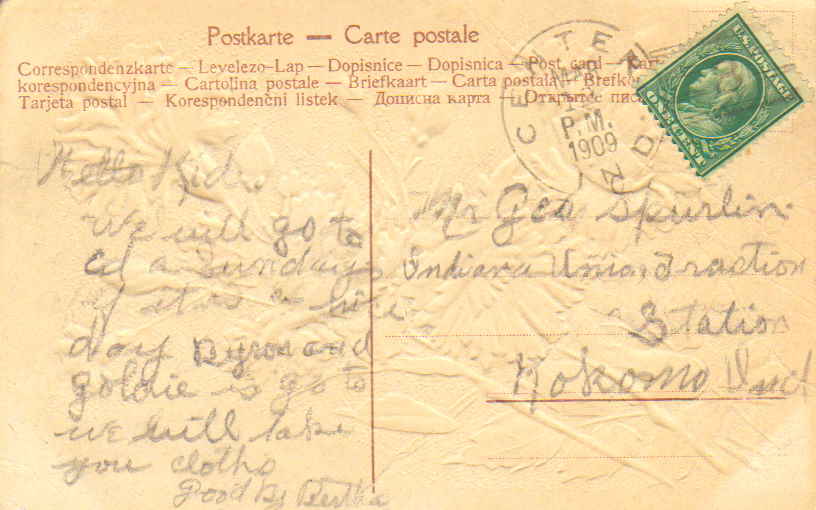 Postkarte — Carte postale
Correspondenzkarte — Levelezo-Lap — Dopisnice — Dopisnica — Post card —
korespondencyjna — Cartolina postale — Briefkaart — Carta postala —
Tarjeta postal — Korespondenčni listek — Дописна карта — Открытое
CENTER
P.M.
1909
IND.
U.S. POSTAGE
ONE CENT
Hello Kid
We will go to
a Sunday
if it is a fine
day Byron and
goldie is go to
we will take
you cloths
Good By Bertha
Mr Geo Spurlin
Indiana Union Traction
Station
Kokomo Ind